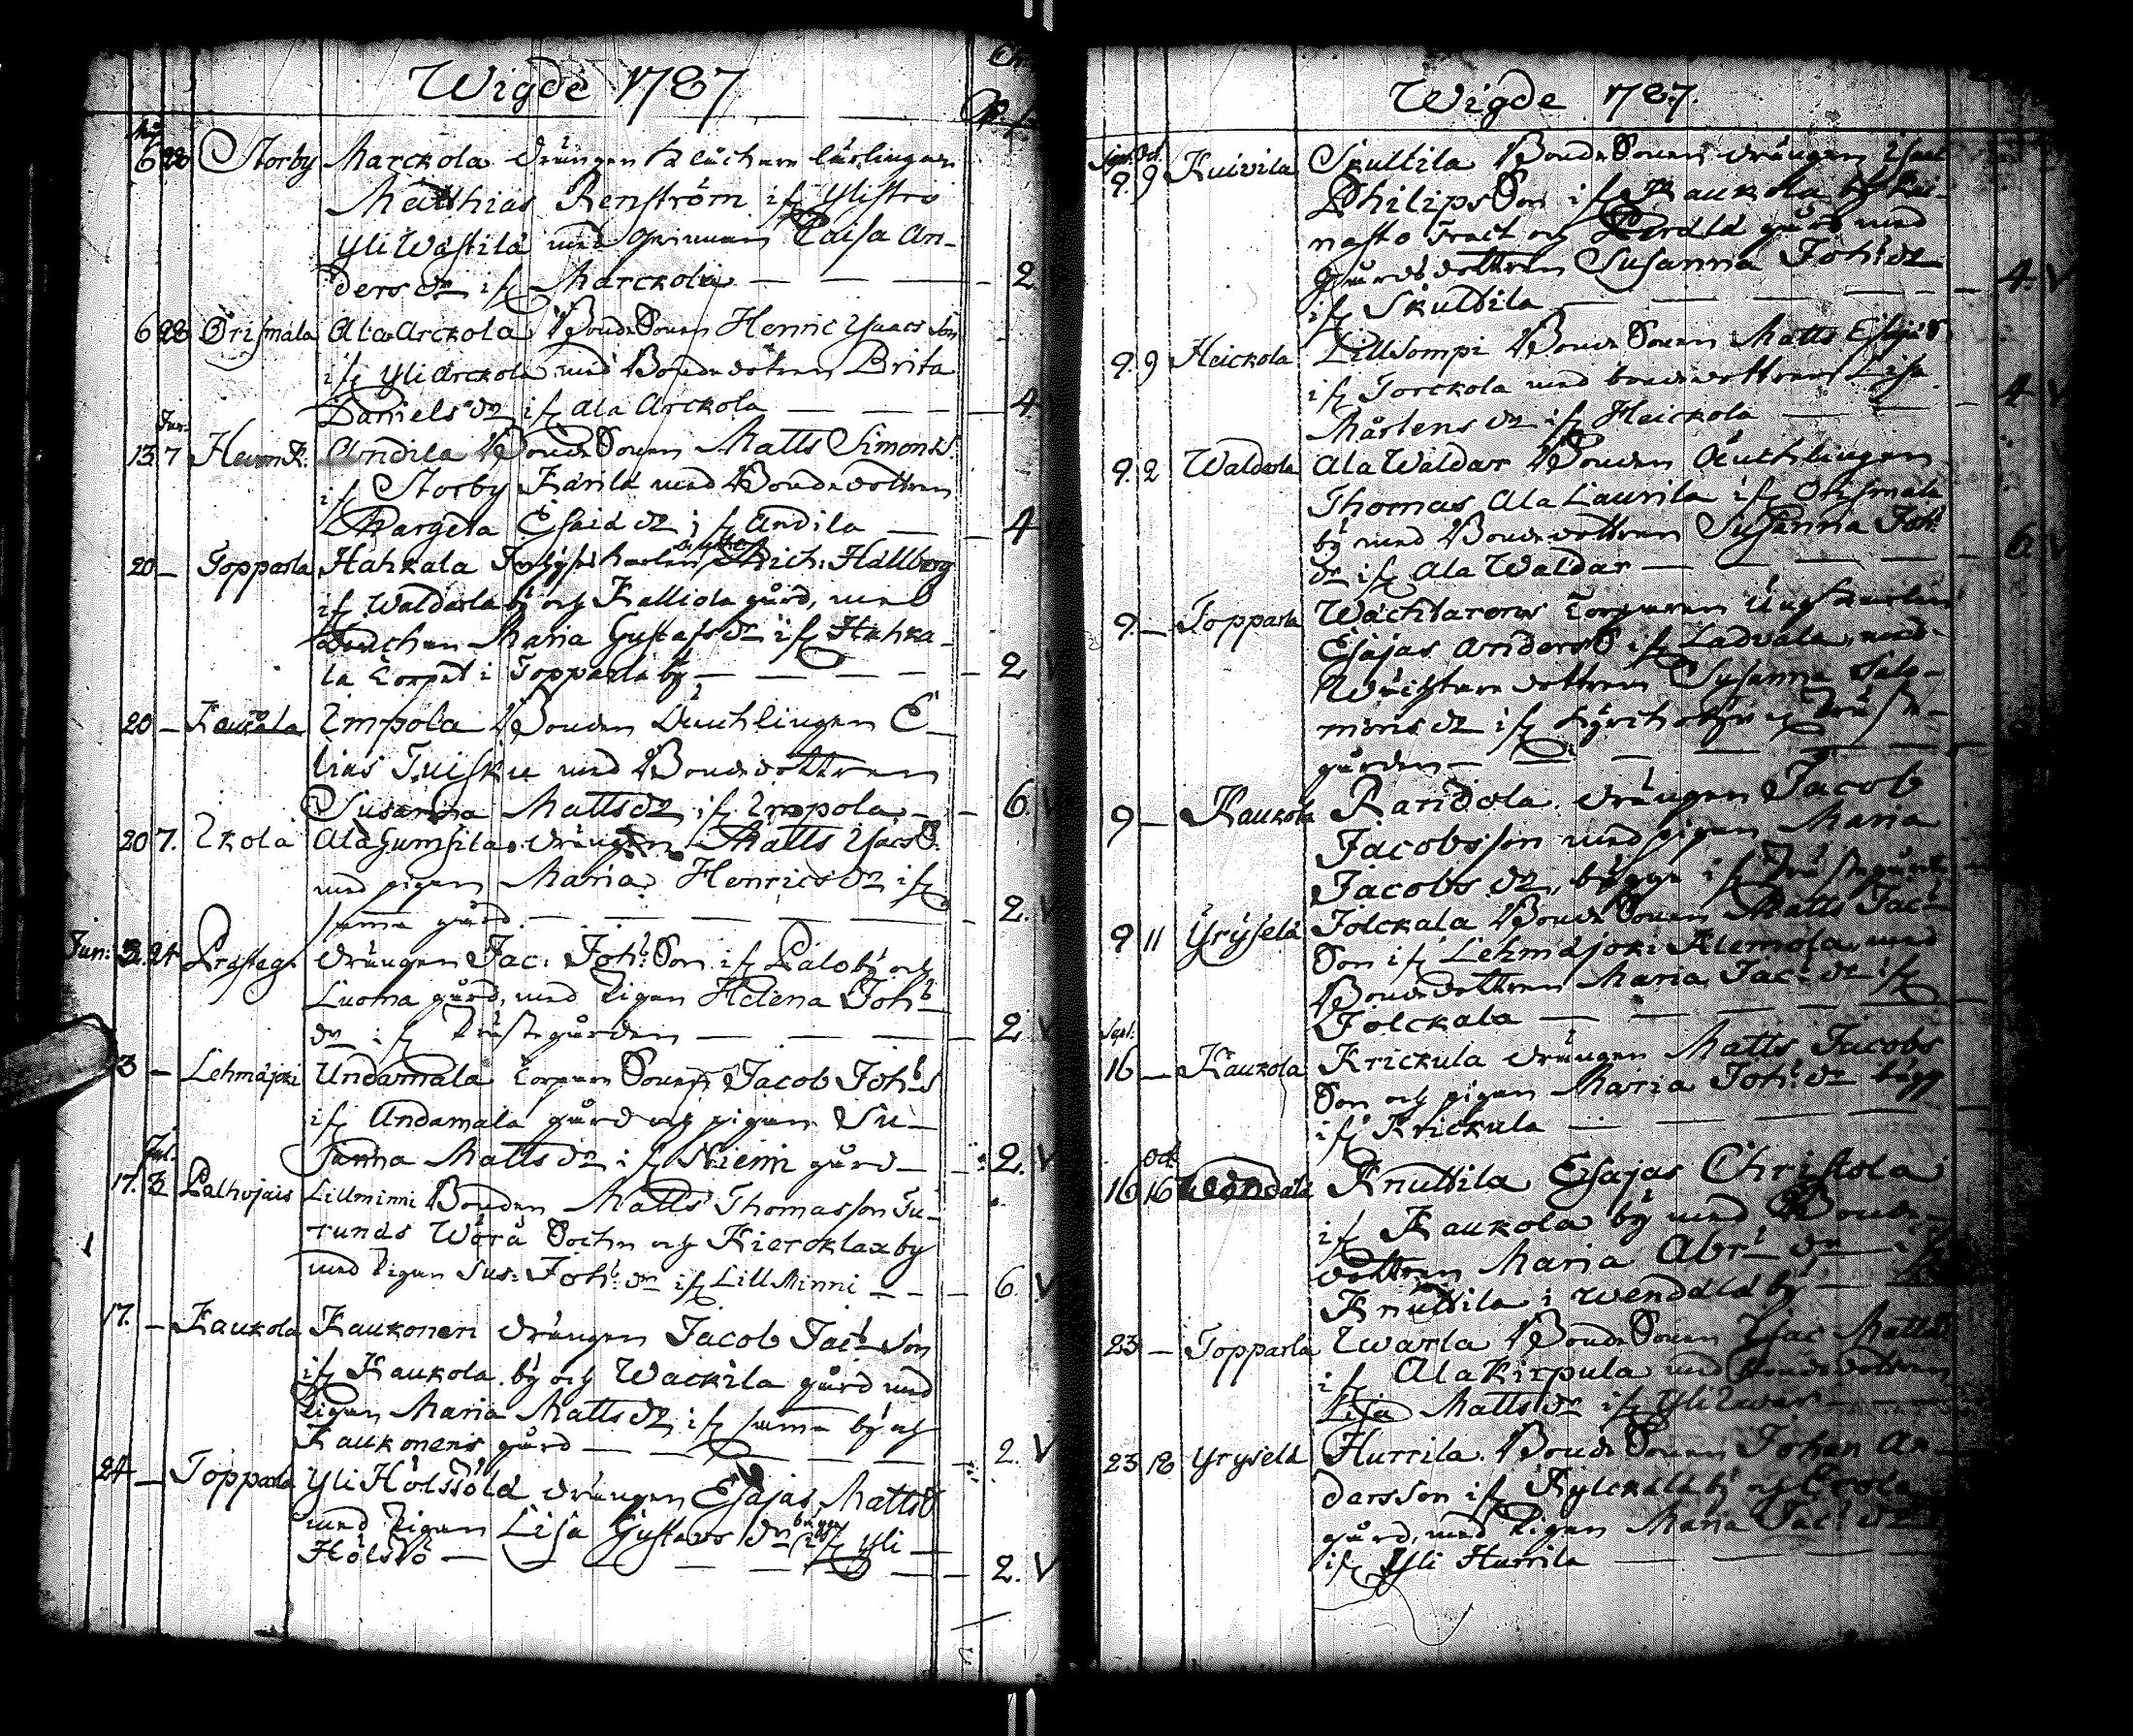 Wigde 1787
Maj
6 28 Storby Marckola drängen Klåckare lärlingen
Matthias Renström if Ylistro
YliWästilä med Qvinnan Caisa An-
ders dr if Marckola — — — 2.
6 28 Orismala Ala Arckola BondeSonen Henric Ysaacs Son
if Yli Arckola med Bondedotren Brita
Daniels dr if Ala Arckola — — — 4
Jun.
13. 7 Andila BondeSonen Matts Simons S.
if Storby Kärilä med Bondedottren
Margeta Esaid dr if Andila — 4
20 — Topparla Hahkala Erich: Hällberg
if Waldarla by och Kalliola gård, med
Maria Gustafs dr if Hahka-
la Torpet i Topparla by — — — 2 V
20 — Kaukola Impola Bonden Enchlingen E-
lias Tuisku med Bondedottren
Susanna Matts dr if Impola — 6. V
20 7. Ikola Ala Gumsila drängen Matts Ysacs S.
med pigan Maria Henrics dr if
samma gård — — — 2. V
Jun: 3. 24 Prästeg. drängen Jac: Joh: Son if Palo by och
Luoma gård, med Pigan Helena Joh:
dr if Prästegården — — — 2. V
3 — Lehmäjoki Undamala Torpare Sonen Jacob Joh: S
if Andamala gård och pigan Su-
sanna Matts dr if Niemi gård — 2. V
Jul.
17. 8 Palhojais Lillminni Bonden Matts Thomasson Tu-
runas Wörå Sochn och Kieroklax by
med Pigan Sus: Joh: dr if Lill Minni — — 6 V
17. — Kaukola Kaukonen drängen Jacob Jac: Son
if Kaukola by och Wackila gård med
Pigan Maria Matts dr if samma by och
Kaukonens gård — — — 2. V
24 — Topparla Yli Hölsöla drängen Esajas Matts S
med Pigan Lisa Gustavs dr bägge if Yli
Hölsö — — — 2. V
Wigde 1787.
Sept. Oct.
9. 9 Kuivila Skuttila BondeSonen drängen Ysaac
Philips Son if Kaukola by Rei-
nasto Tract och Perälä gård med
Gårdsdottren Susanna Joh: dr
if Skuttila — — — 4. V
9. 9 Heickola LillSompi BondeSonen Matts Esajæ S.
if Torckola med bondedottren Lisa
Mårtens dr if Heickola — — 4 V
9. 2 Waldarla Ala Waldar Bonden Änchlingen
Thomas Ala Laurila if Orismala
by med Bondedottren Susanna Joh:
dr if Ala Waldar — — — 6 V
9. — Topparla Wächtarons Torparen Ungkarlen
Esajas Anders S if Ladvala, med
Wächtare dottren Susanna Salo-
mons dr if Kyrchobyn och Präste-
gården — — —
9 — Kaukola drängen Jacob
Jacobsson med pigan Maria
Jacobs dr, bägge if Prästegården
9 11 Yryselä Jolckala BondeSonen Matts Jac:
Son if Lehmäjoki Alemola, med
Bondedottren Maria Jac: dr if
Jolckala — — —
Sept.
16 — Kaukola Krickula drängen Matts Jacobs
Son och pigan Maria Joh: dr bägg
if Krickula — — —
Oct.
16 16 Wendala Knuttila Esajas Christola
if Kaukola by med Bonde-
dottren Maria Abr: dr if
Knuttila i Wendälä by —
23 — Topparla Iwarla BondeSonen Ysac Matts S
if AlaKirpula med Bondedottren
Lisa Matts dr if Yli Iwar — —
23 18 Yryselä Hurrila BondeSonen Johan An-
dersson if Kylckälä by och
gård, med Pigan Maria Jac: dr
if Yli Hurrila — — —